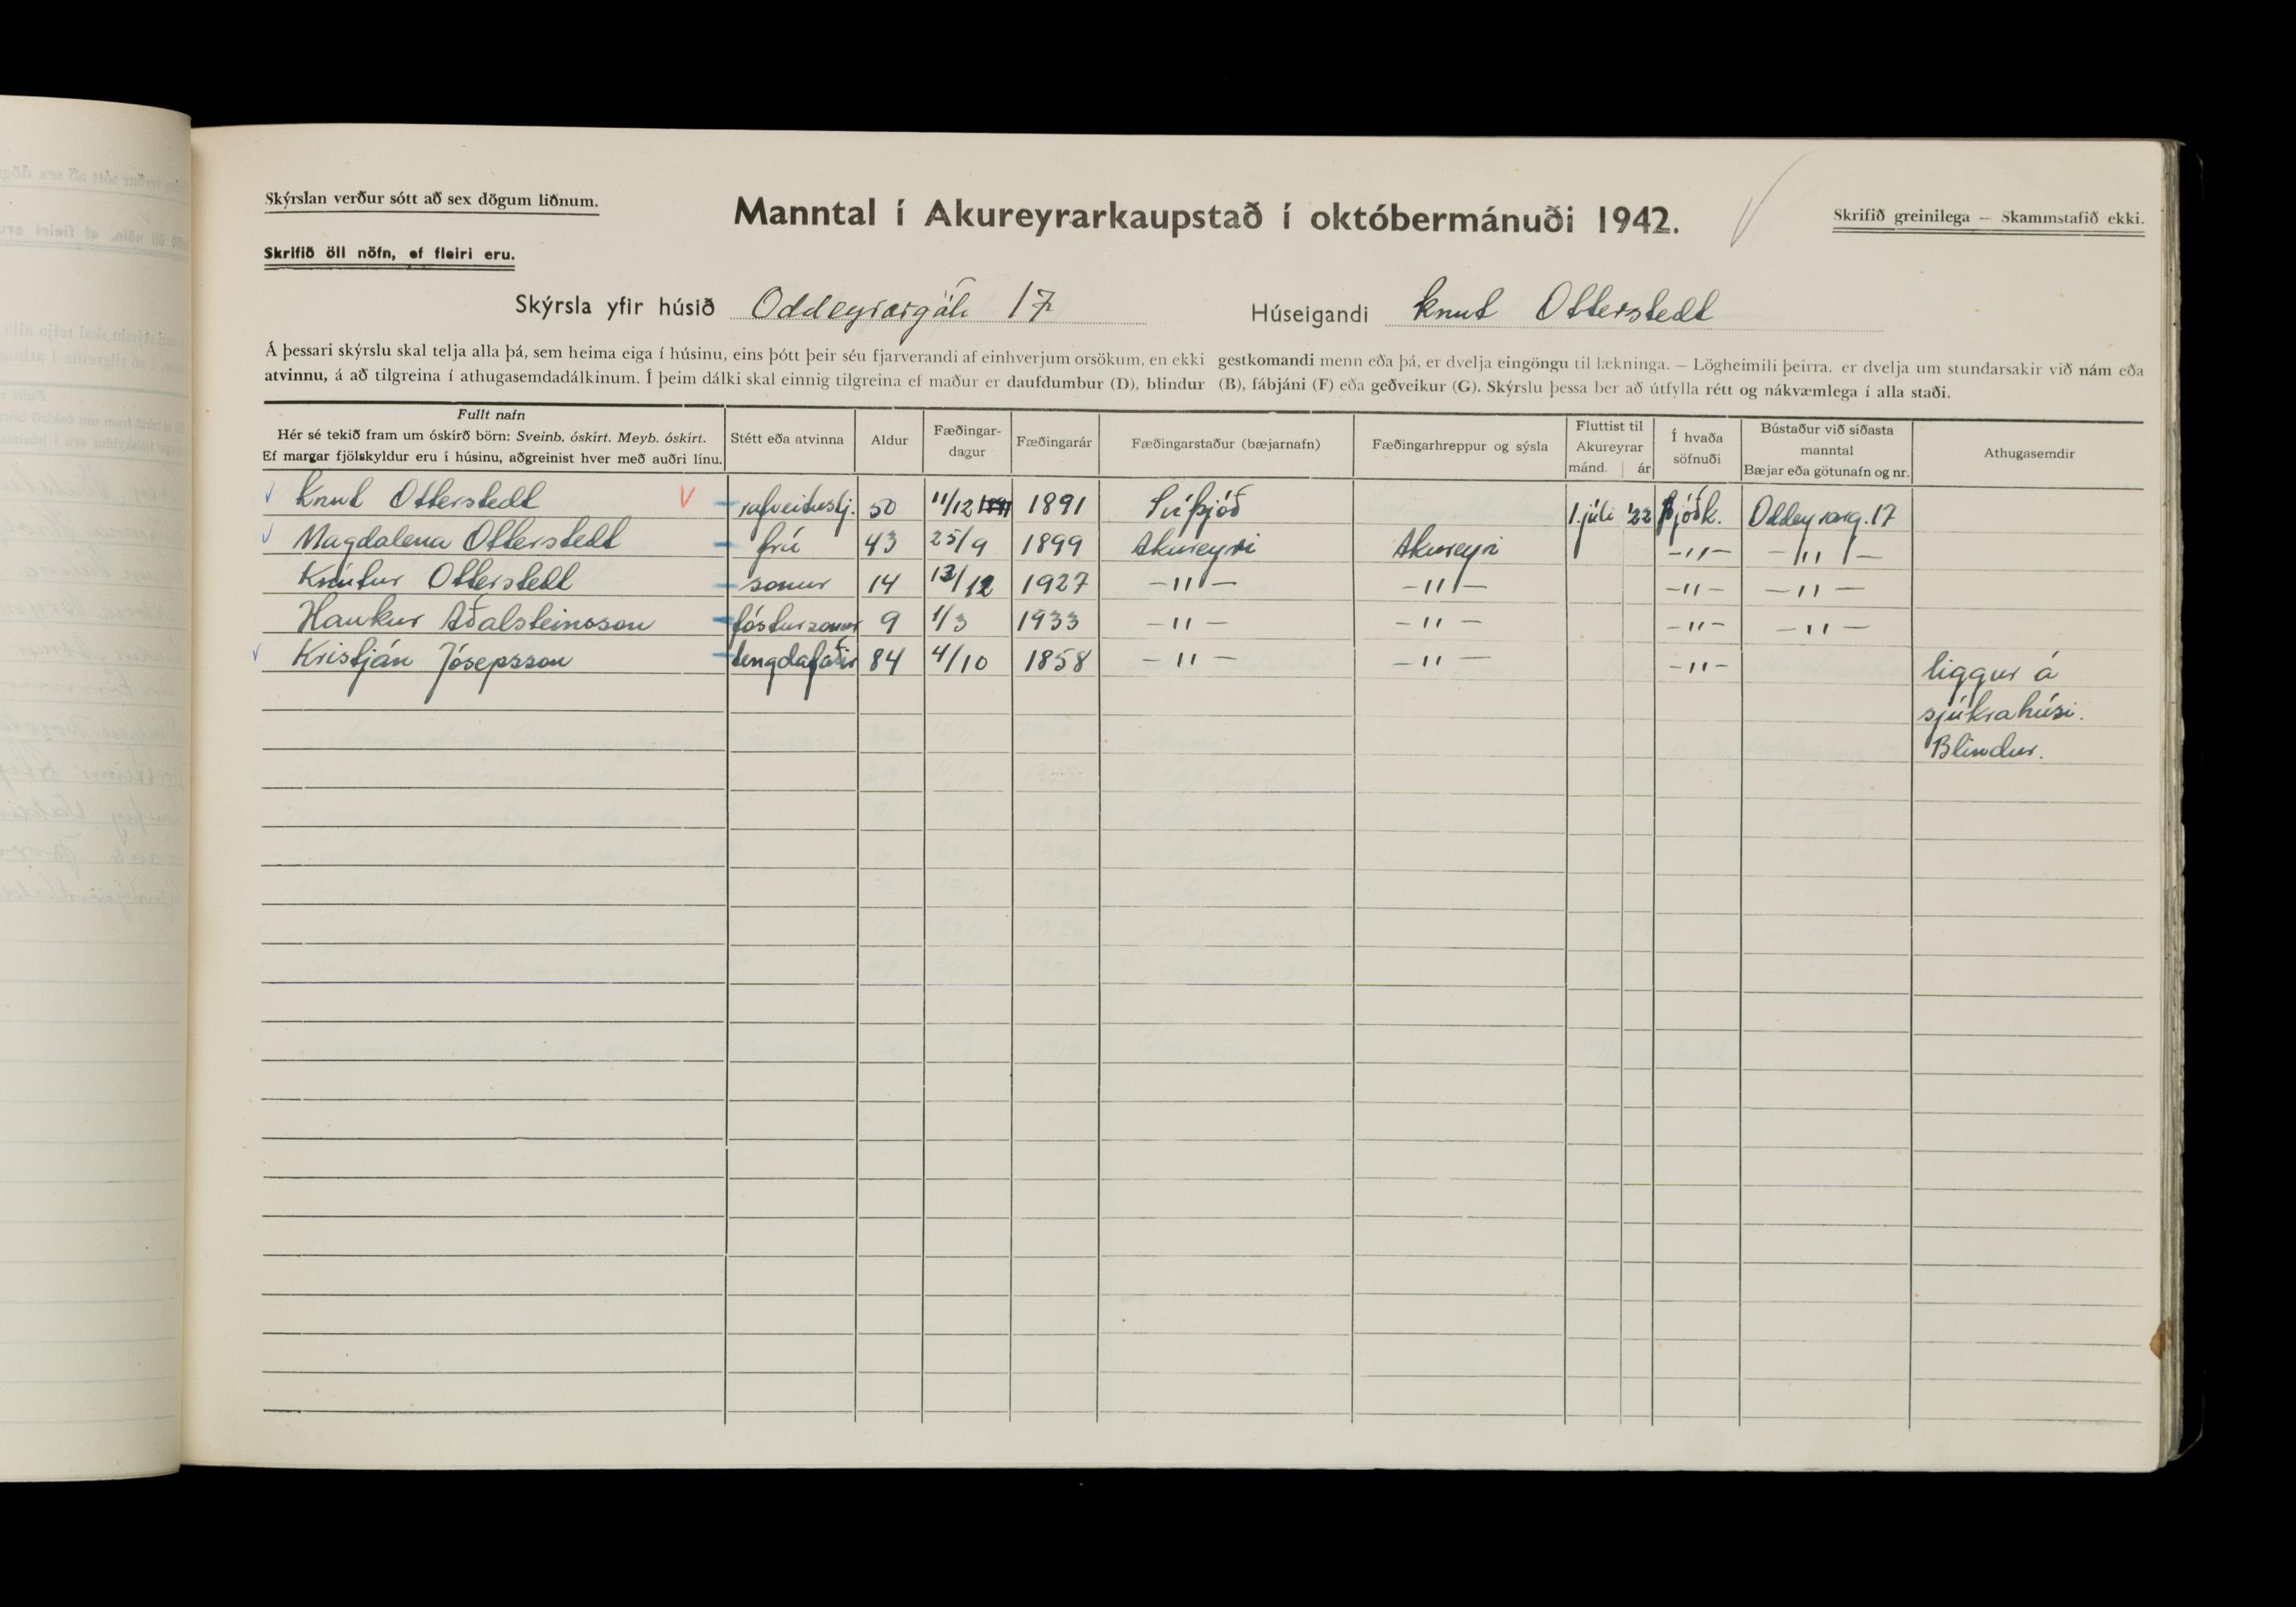 Skýrslan verður sótt að sex dögum liðnum.
Manntal í Akureyrarkaupstað í októbermánuði 1942.
Skrifið greinilega — Skammstafið ekki.
Skrifið öll nöfn, ef fleiri eru.
Skýrsla yfir húsið Oddeyrargötu 17 Húseigandi Knut Otterstedt
Á þessari skýrslu skal telja alla þá, sem heima eiga í húsinu, eins þótt þeir séu fjarverandi af einhverjum orsökum, en ekki gestkomandi menn eða þá, er dvelja eingöngu til lækninga. — Lögheimili þeirra, er dvelja um stundarsakir við nám eða
atvinnu, á að tilgreina í athugasemdadálkinum. Í þeim dálki skal einnig tilgreina ef maður er daufdumbur (D), blindur (B), fábjáni (F) eða geðveikur (G). Skýrslu þessa ber að útfylla rétt og nákvæmlega í alla staði.
Fullt nafn
Hér sé tekið fram um óskírð börn: Sveinb. óskírt. Meyb. óskírt.
Ef margar fjölskyldur eru í húsinu, aðgreinist hver með auðri línu.
Stétt eða atvinna
Aldur
Fæðingar-
dagur
Fæðingarár
Fæðingarstaður (bæjarnafn)
Fæðingarhreppur og sýsla
Fluttist til
Akureyrar
mánd. ár
Í hvaða
söfnuði
Bústaður við síðasta
manntal
Bæjar eða götunafn og nr.
Athugasemdir
Knut Otterstedt rafveitustj. 50 11/12 1891 Svíþjóð 1. júli '22 Þjóðk. Oddeyrarg. 17
Magdalena Otterstedt frú 43 25/9 1899 Akureyri Akureyri -"- -"-
Knútur Otterstedt sonur 14 13/12 1927 -"- -"- -"- -"-
Haukur Aðalsteinsson fóstursonur 9 1/3 1933 -"- -"- -"- -"-
Kristján Jósepsson tengdafaðir 84 4/10 1858 -"- -"- -"- liggur á
sjúkrahúsi.
Blindur.